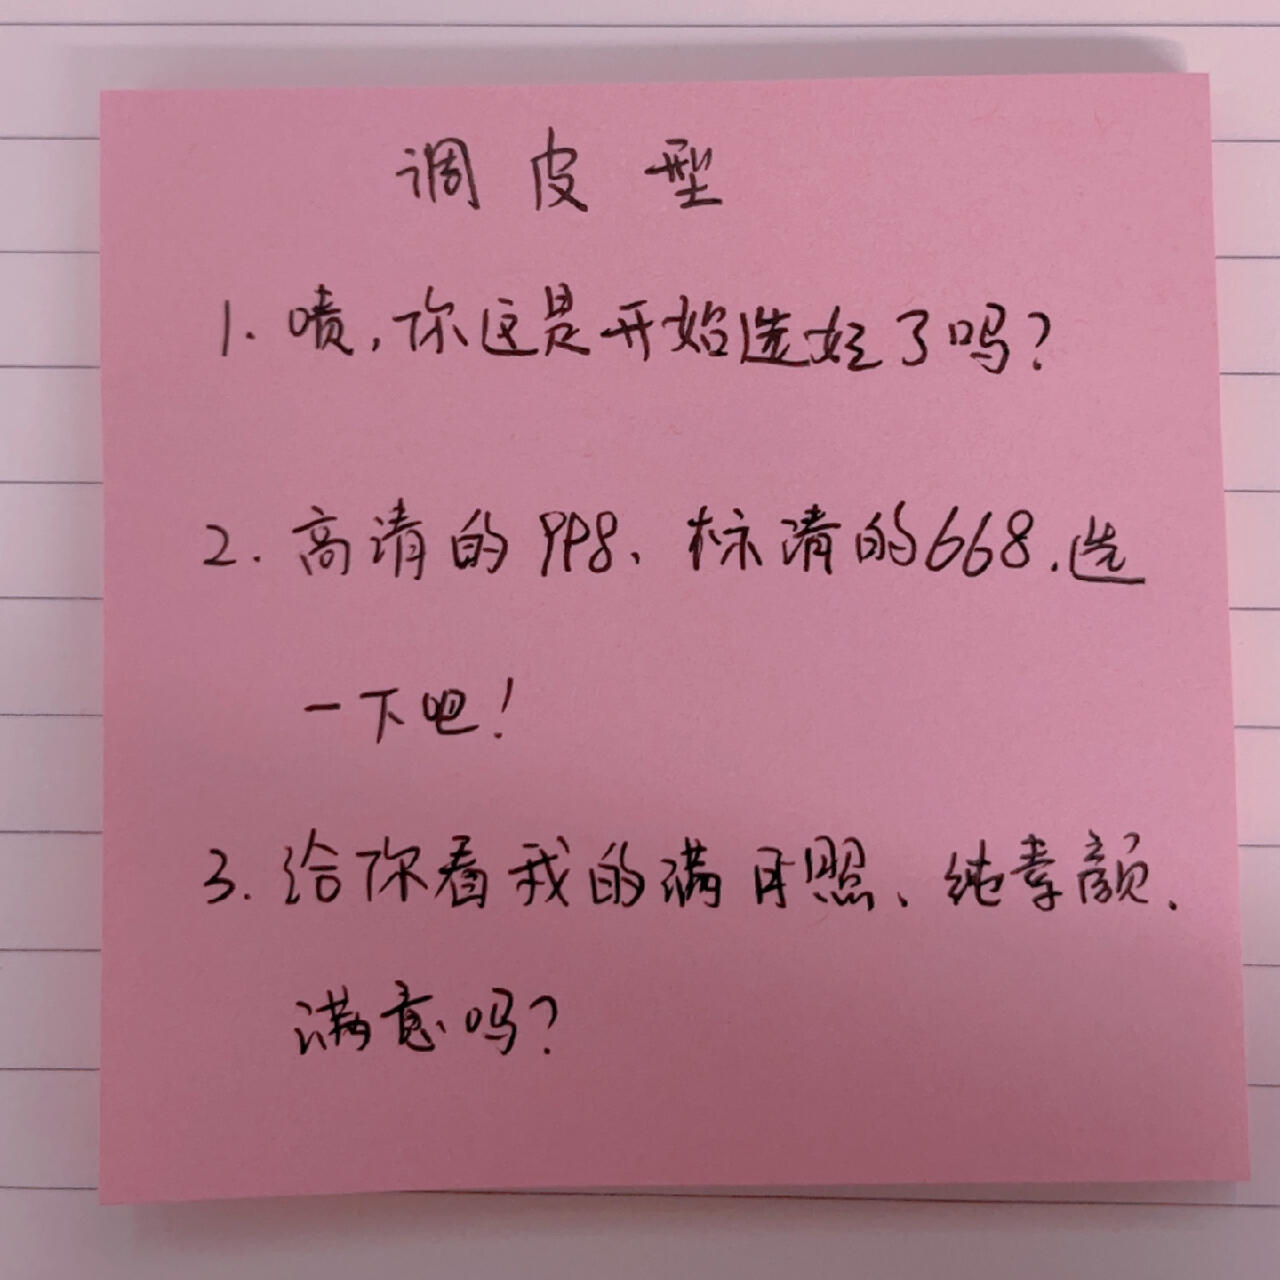 调皮型
1. 啧,你这是开始选妃了吗?
2. 高清的998、标清的668.选
一下吧!
3. 给你看我的满月照、纯素颜.
满意吗?